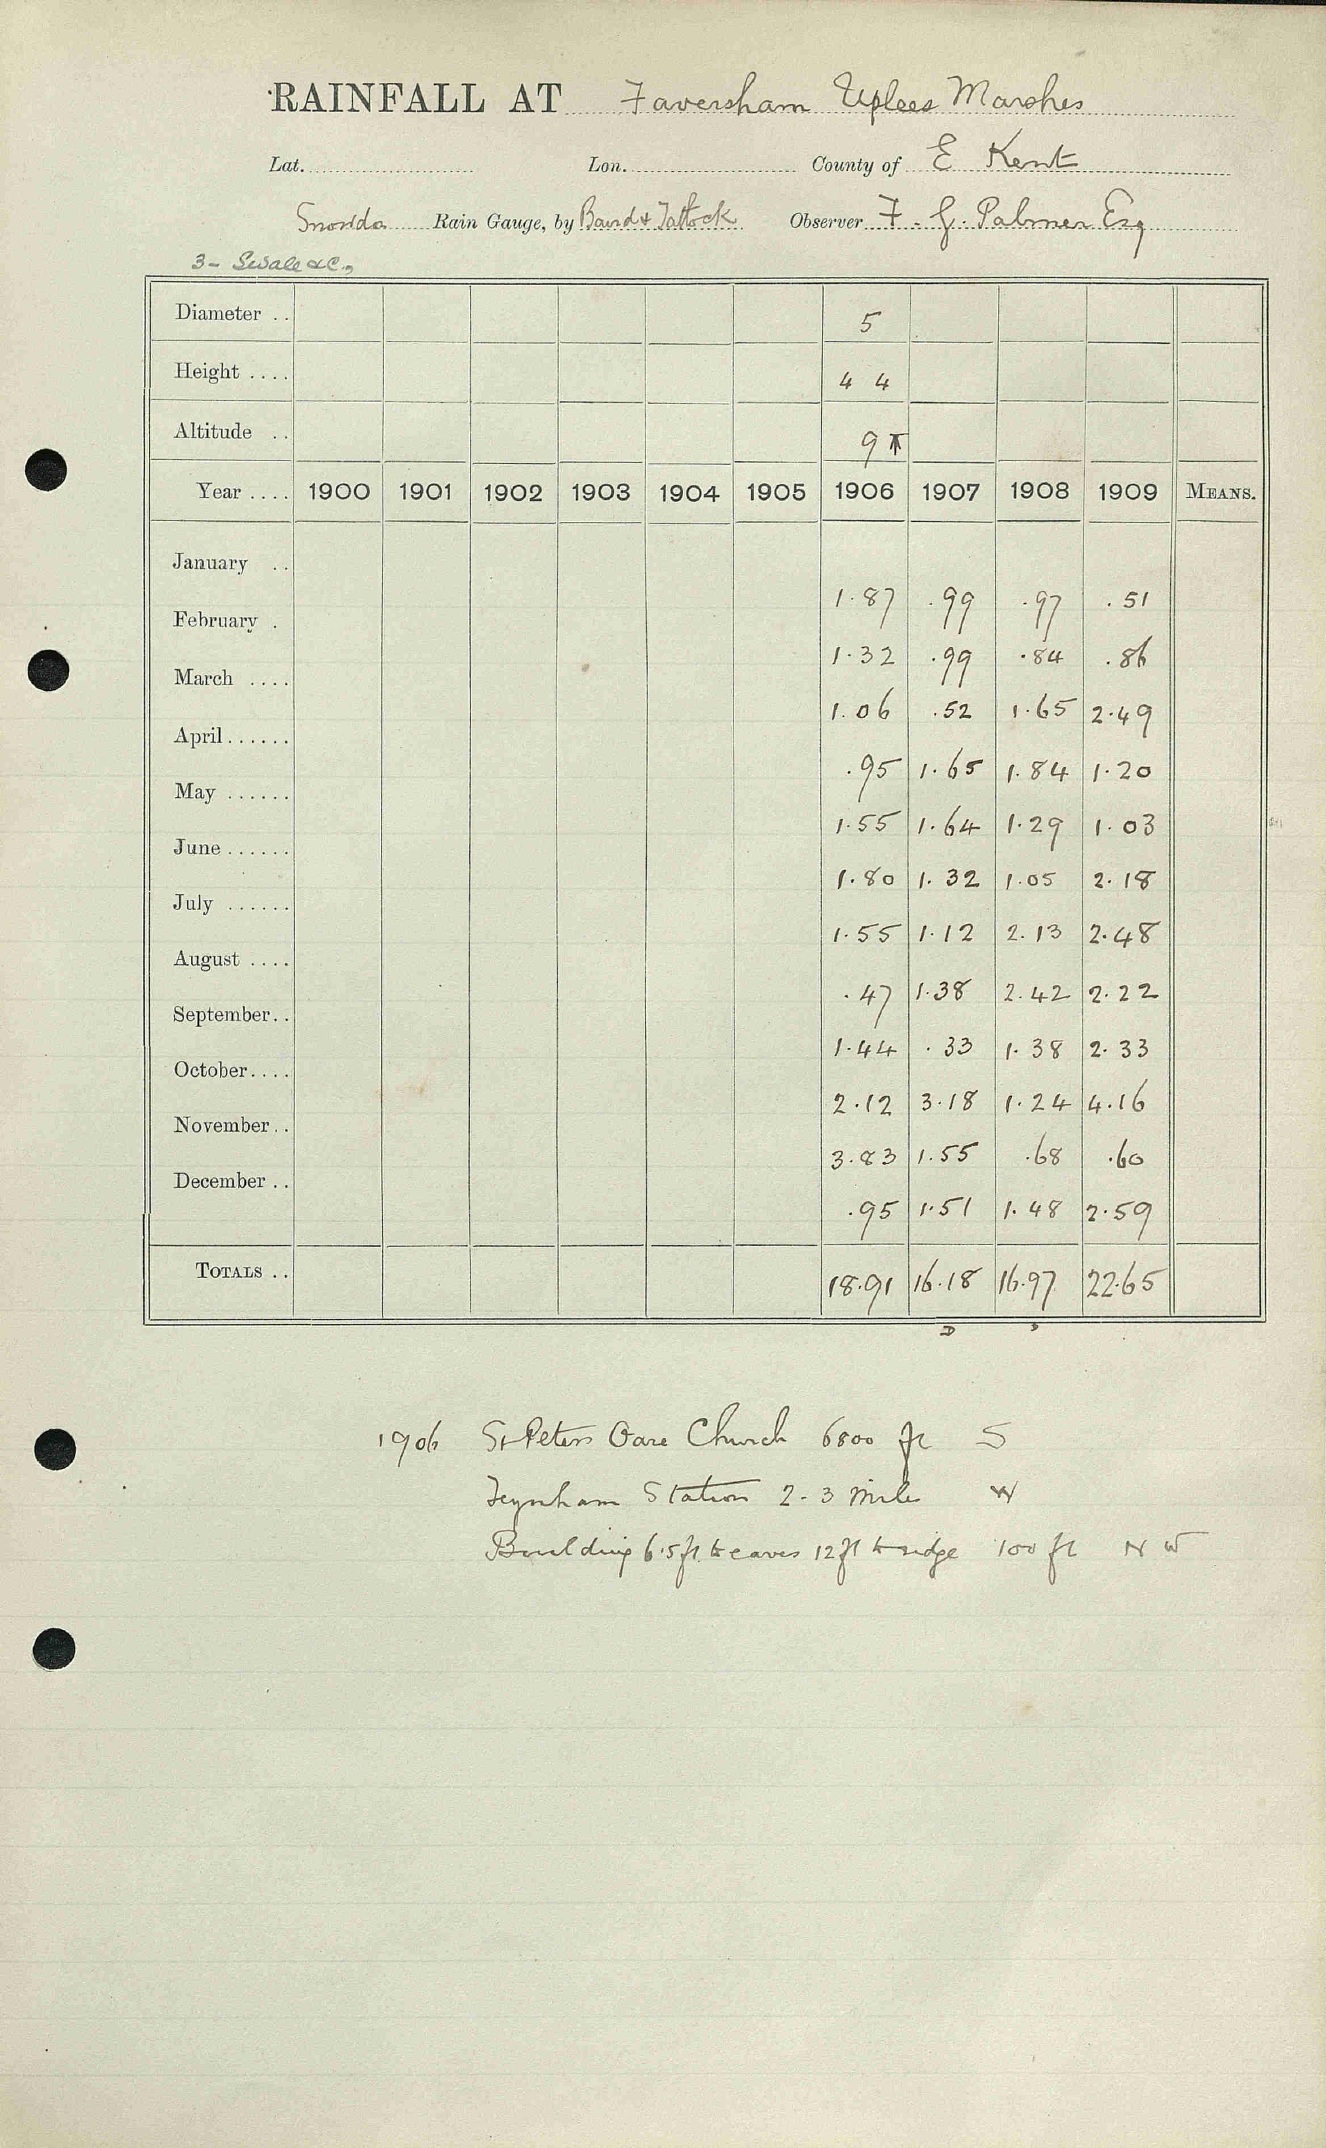 RAINFALL AT Faversham Uplees Marshes
Lat. Lon. County of E Kent
Snowdon Rain Gauge, by Baird & Tatlock Observer F. G. Palmer Esq
3- Swale &c.,
Diameter .. 5
Height .... 4 4
Altitude .. 9
Year .... 1900 1901 1902 1903 1904 1905 1906 1907 1908 1909 MEANS.
January .. 1.87 .99 .97 .51
February . 1.32 .99 .84 .86
March .... 1.06 .52 1.65 2.49
April...... .95 1.65 1.84 1.20
May ...... 1.55 1.64 1.29 1.03
June ...... 1.80 1.32 1.05 2.18
July ...... 1.55 1.12 2.13 2.48
August .... .47 1.38 2.42 2.22
September.. 1.44 .33 1.38 2.33
October.... 2.12 3.18 1.24 4.16
November.. 3.83 1.55 .68 .60
December .. .95 1.51 1.48 2.59
TOTALS .. 18.91 16.18 16.97 22.65
D
1906 St Peters Oare Church 6800 ft S
Teynham Station 2-3 Miles W
Building 6.5 ft to eaves 12 ft to ridge 100 ft N W